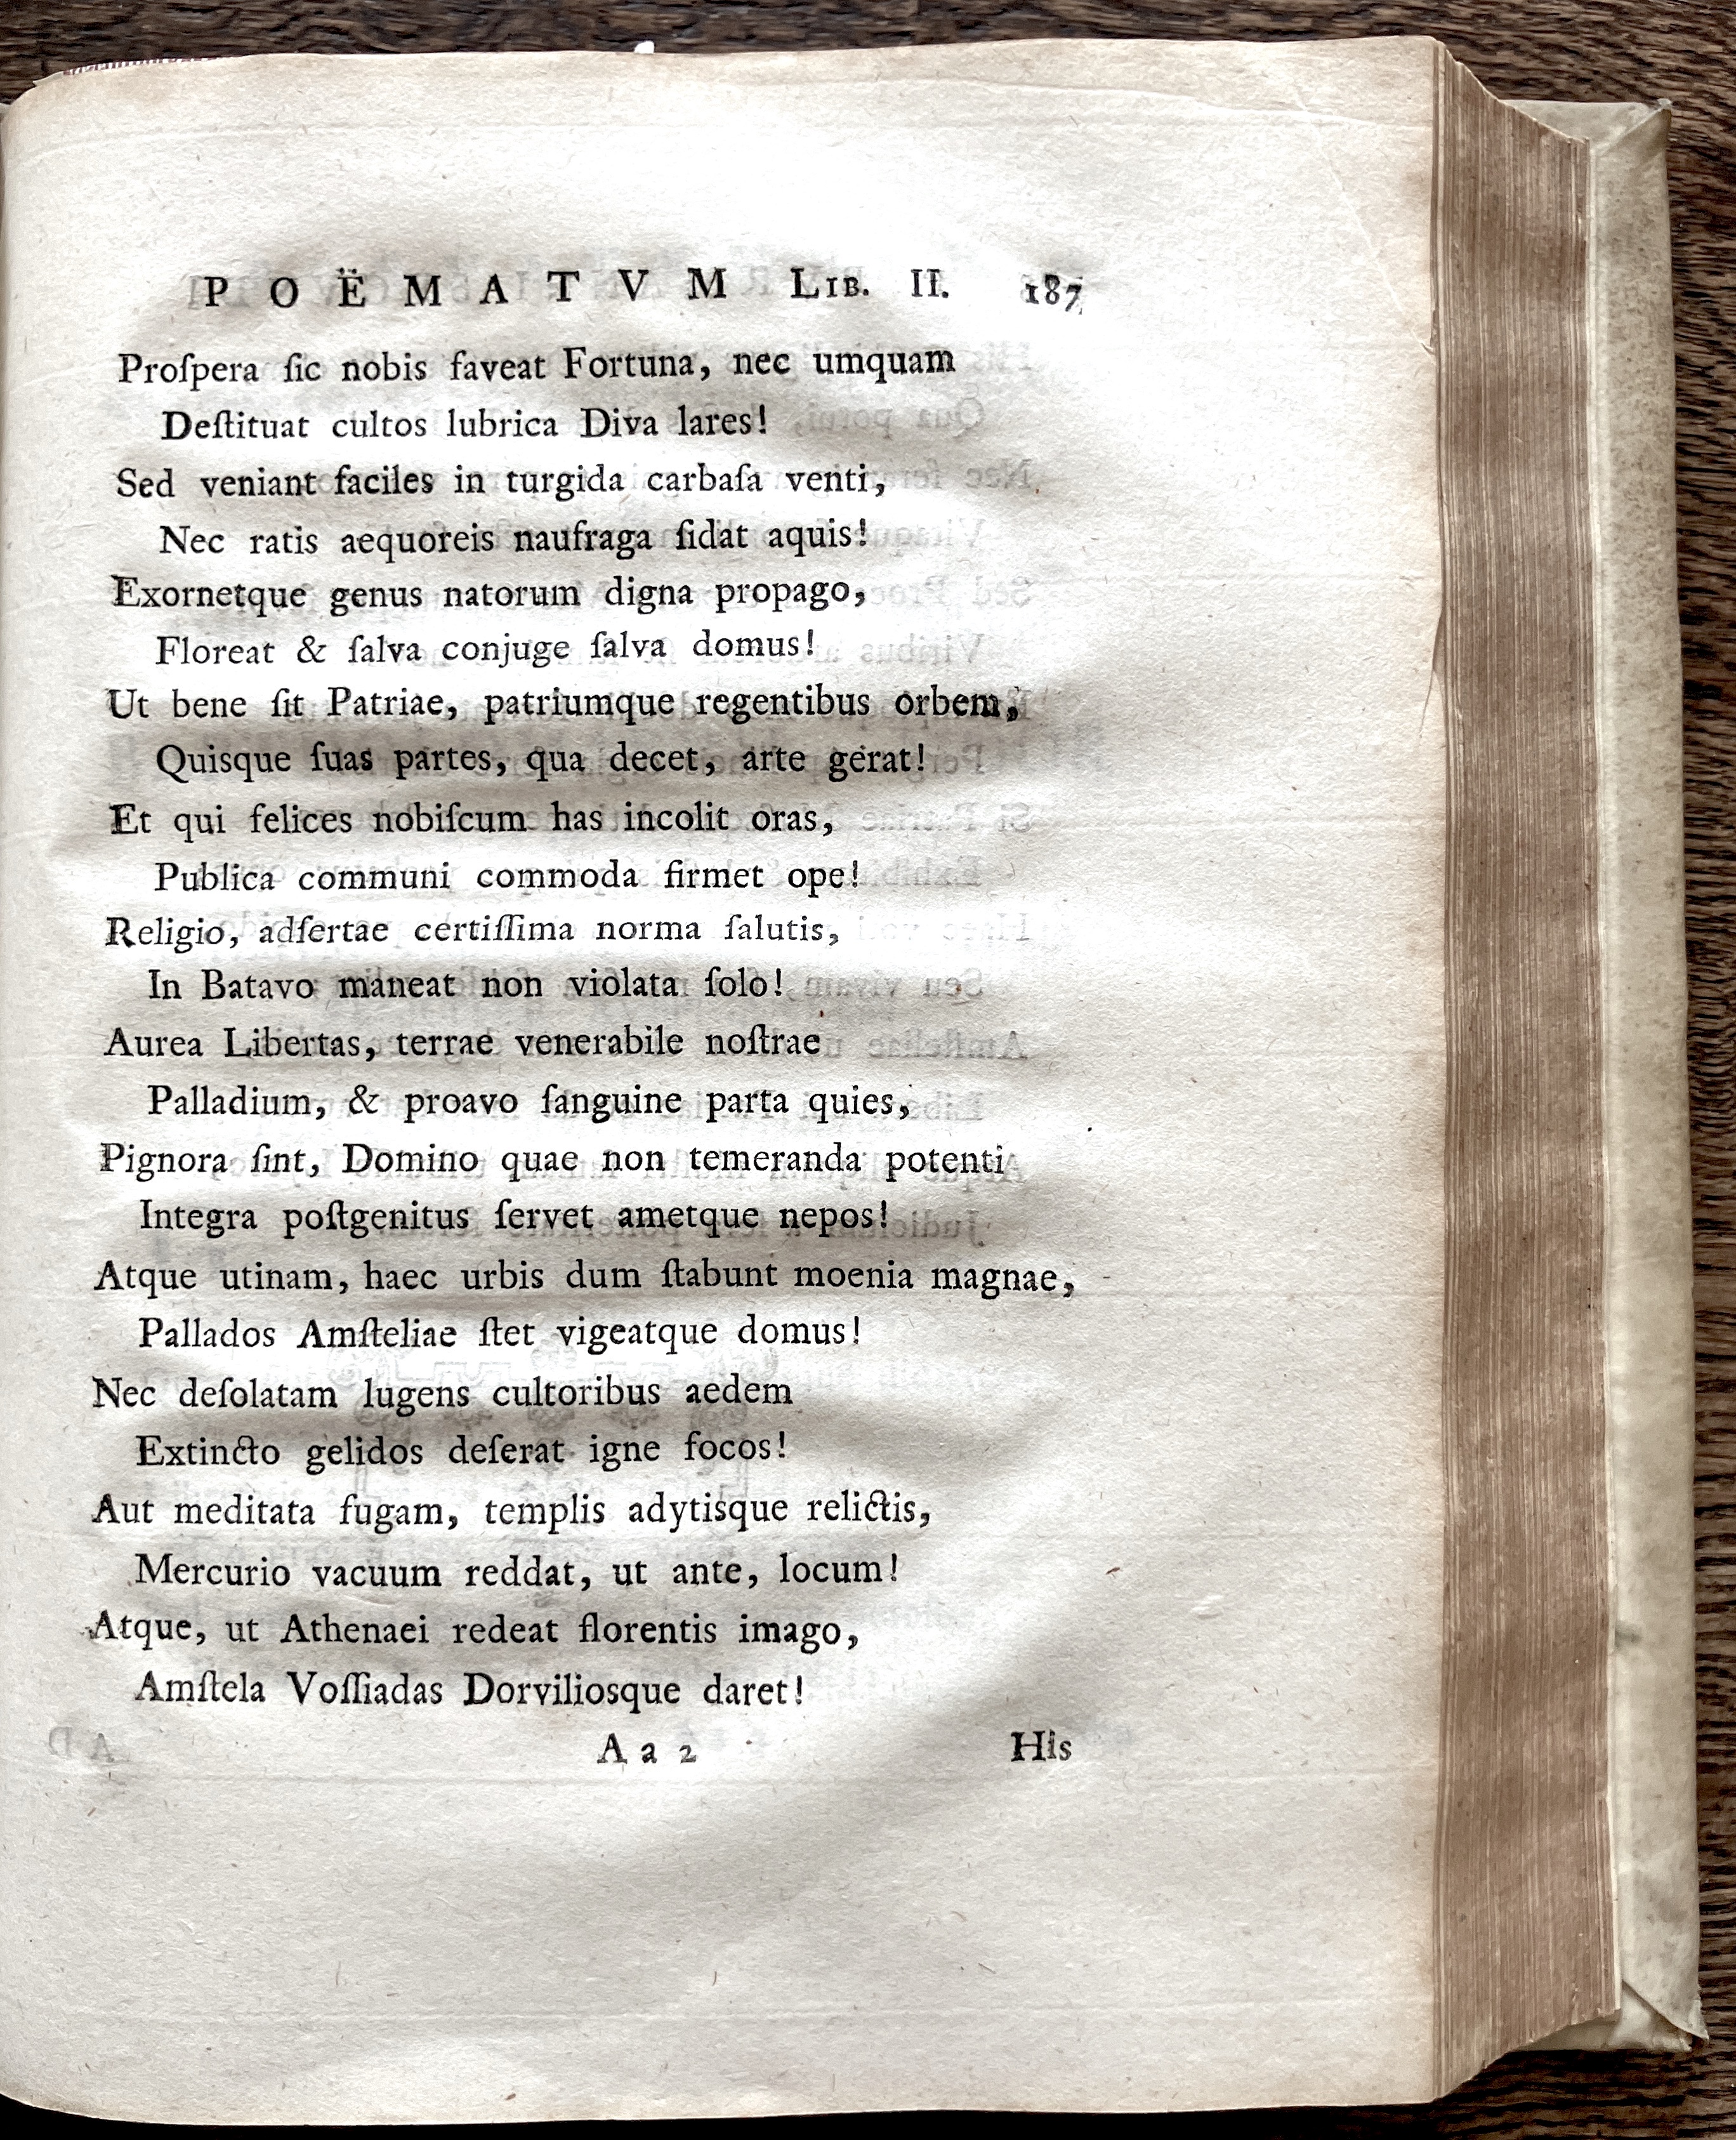 POËMATVM LIB. II. 187
Proſpera ſic nobis faveat Fortuna, nec umquam
Deſtituat cultos lubrica Diva lares!
Sed veniant faciles in turgida carbaſa venti,
Nec ratis aequoreis naufraga ſidat aquis!
Exornetque genus natorum digna propago,
Floreat & ſalva conjuge ſalva domus!
Ut bene ſit Patriae, patriumque regentibus orbem,
Quisque ſuas partes, qua decet, arte gerat!
Et qui felices nobiſcum has incolit oras,
Publica communi commoda firmet ope!
Religio, adſertae certiſſima norma ſalutis,
In Batavo maneat non violata ſolo!
Aurea Libertas, terrae venerabile noſtrae
Palladium, & proavo ſanguine parta quies,
Pignora ſint, Domino quae non temeranda potenti
Integra poſtgenitus ſervet ametque nepos!
Atque utinam, haec urbis dum ſtabunt moenia magnae,
Pallados Amſteliae ſtet vigeatque domus!
Nec deſolatam lugens cultoribus aedem
Extincto gelidos deſerat igne focos!
Aut meditata fugam, templis adytisque relictis,
Mercurio vacuum reddat, ut ante, locum!
Atque, ut Athenaei redeat florentis imago,
Amſtela Voſſiadas Dorviliosque daret!
A a 2 His